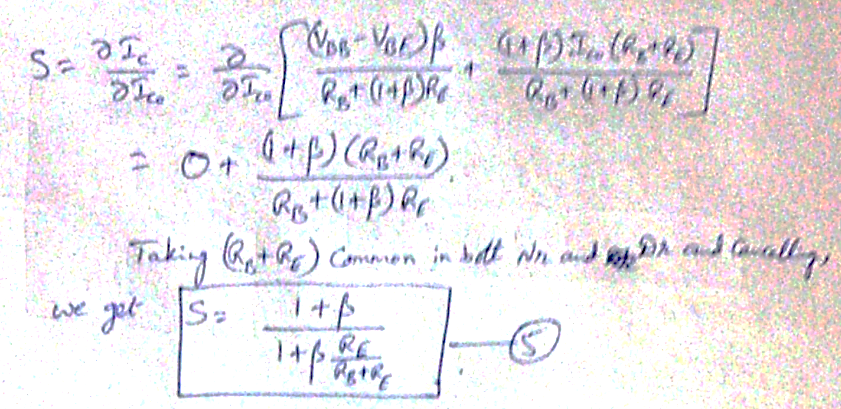 S = ∂I_C / ∂I_CO = ∂ / ∂I_CO [ (V_BB - V_BE)β / (R_B + (1+β)R_E) + (1+β) I_CO (R_B+R_E) / (R_B + (1+β) R_E) ]
= 0 + (1+β)(R_B+R_E) / (R_B + (1+β) R_E)
Taking (R_B+R_E) common in both Nr and Dr and cancelling,
we get S = (1+β) / (1+β R_E / (R_B+R_E)) — (5)